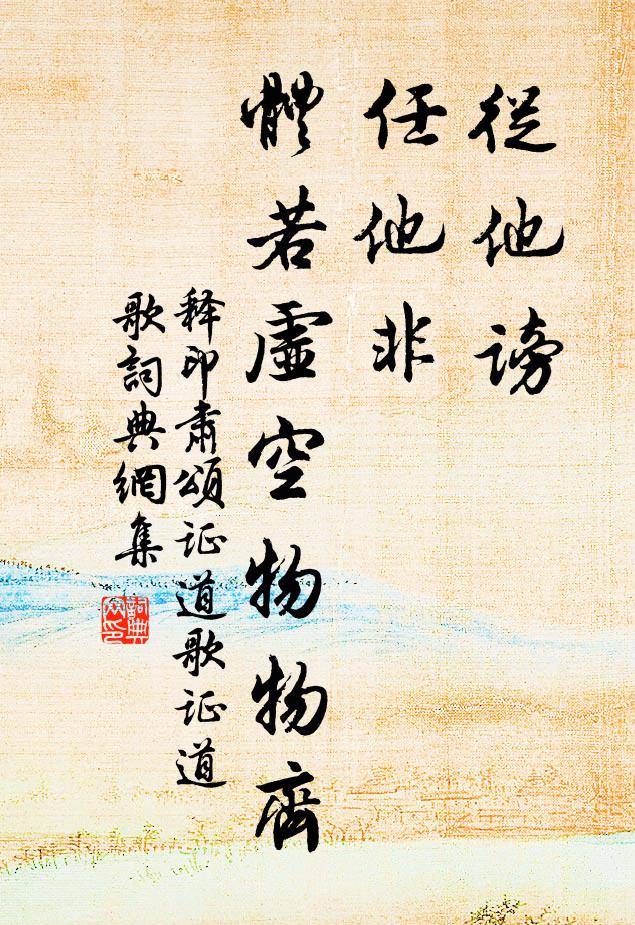 從他謗
任他非
體若虛空物物齊
释印肃頌证道歌证道
歌詞典網集
詞典